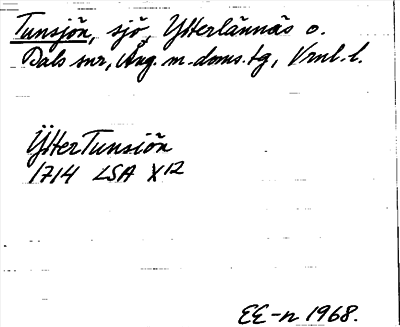 Tunsjön, sjö, Ytterlännäs o.
Dals snr, Ång. m. doms.tg, Vrnl. l.
YtterTunsiön
1714 LSA X12
EE-n 1968.